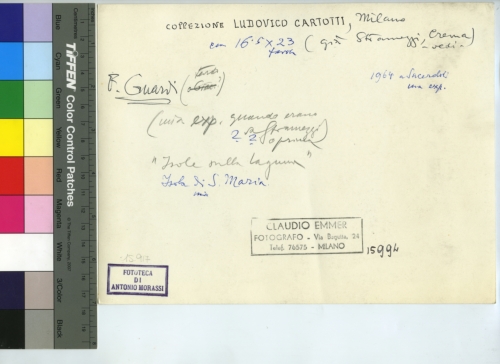 COLLEZIONE LUDOVICO CARTOTTI, Milano
cm 16.5 x 23 (già Stramezzi, Crema)
tavola - vedi -
F. Guardi (tardo
1964 a Sacerdoti
mia exp.
(mia exp. quando erano
da Stramezzi)
? ? o prima
"Isola sulla laguna"
Isola di S. Maria
CLAUDIO EMMER
FOTOGRAFO - Via Bigutta, 24
Telef. 76575 - MILANO
15994
15994
FOTOTECA
DI
ANTONIO MORASSI
TIFFEN Color Control Patches
Centimetres
Blue
Cyan
Green
Yellow
Red
Magenta
White
3/Color
Black